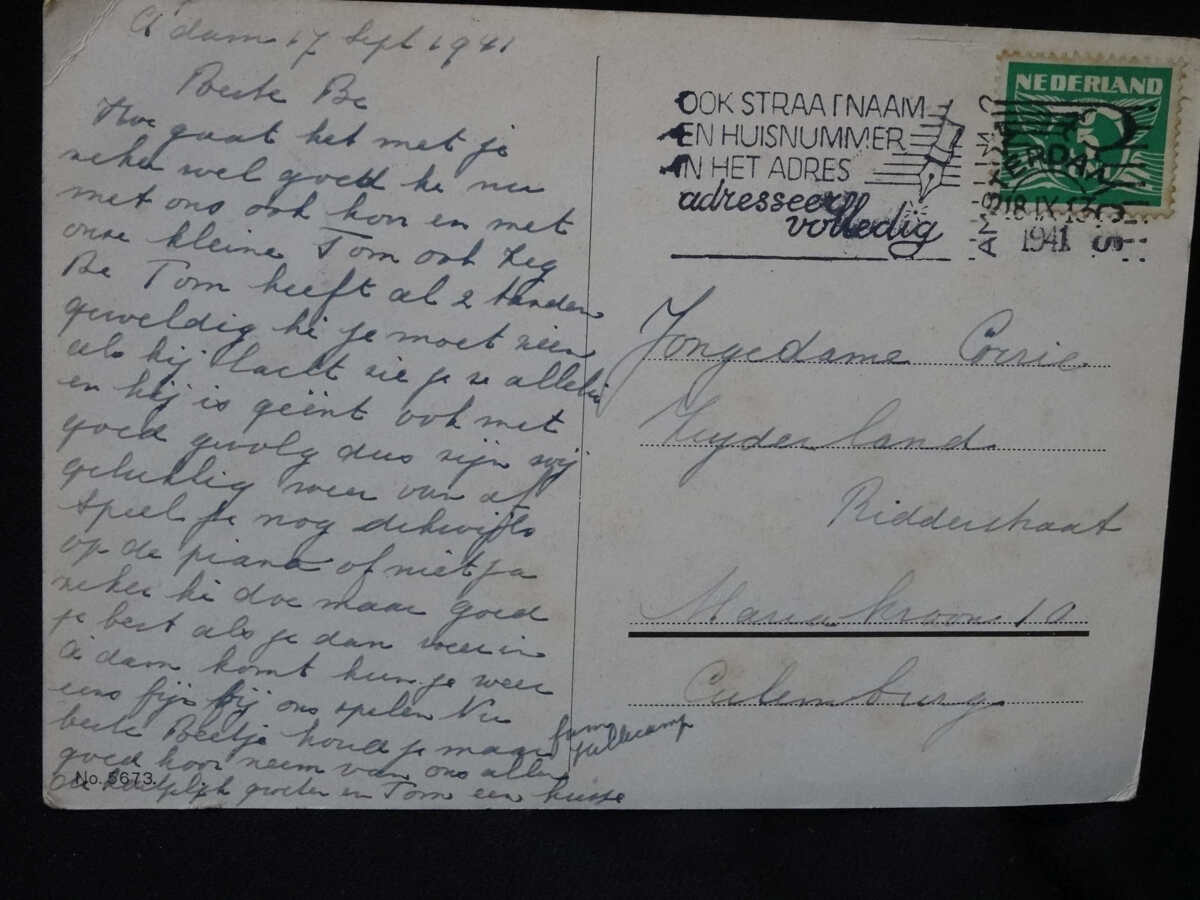 A'dam 17 Sept 1941
Beste Be
Hoe gaat het met je
zeker wel goed he nu
met ons ook hoor en met
onze kleine Tom ook Zeg
Be Tom heeft al 2 tanden
geweldig hè je moet zien
als hij lacht zie je ze allebei
en hij is geënt ook met
goed gevolg dus zijn wij
gelukkig weer van af
speel je nog dikwijls
op de piano of niet ja
zeker hè doe maar goed
je best als je dan weer in
A'dam komt kun je weer
eens fijn bij ons spelen Nu
beste Beetje houd je maar
goed hoor neem van ons allen
de hartelijk groeten en Tom een kusje
fam
No. 5673.
OOK STRAATNAAM
EN HUISNUMMER
IN HET ADRES
adresseer
volledig
NEDERLAND
AMSTERDAM
18 IX
1941
Jongedame Corrie
Zuyderland
Ridderstraat
Mariakroon 10
Culemburg